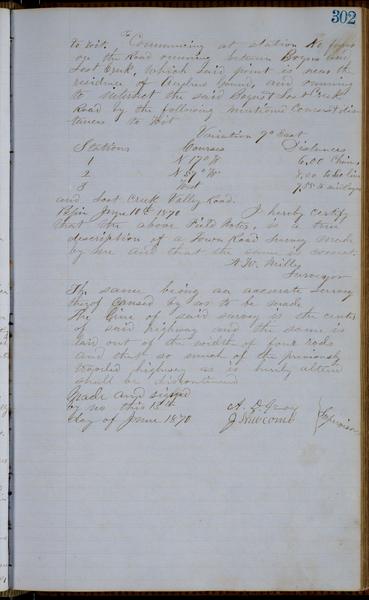 302
to wit. Commencing at station No four
on the Road running between Bogus and
Loot Creek, which said point is near the
residence of and running
to intersect the said Bogus & Loot Creek
Road by the following mentioned Courses & dis
tances to Wit
Variation 9° East
Stations Courses Distances
1 N 17° W 6.00 Chains
2 N 59° W 8.00 to
3 West 7.50 to
and Loot Creek Valley Road.
June 10th 1870 I hereby certify
that the above Field Notes, is a true
description of a Town Road Survey made
by me and that the same is correct.
Surveyor
The same being an accurate survey
thereof caused by us to be made
The line of said survey is the center
of said highway and the same is
laid out of the width of four rods
and that so much of the previously
traveled highway as is hereby altered
shall be discontinued
Made and signed
by us this 15th A. D. Gray
day of June 1870 J Newcomb Supervisors